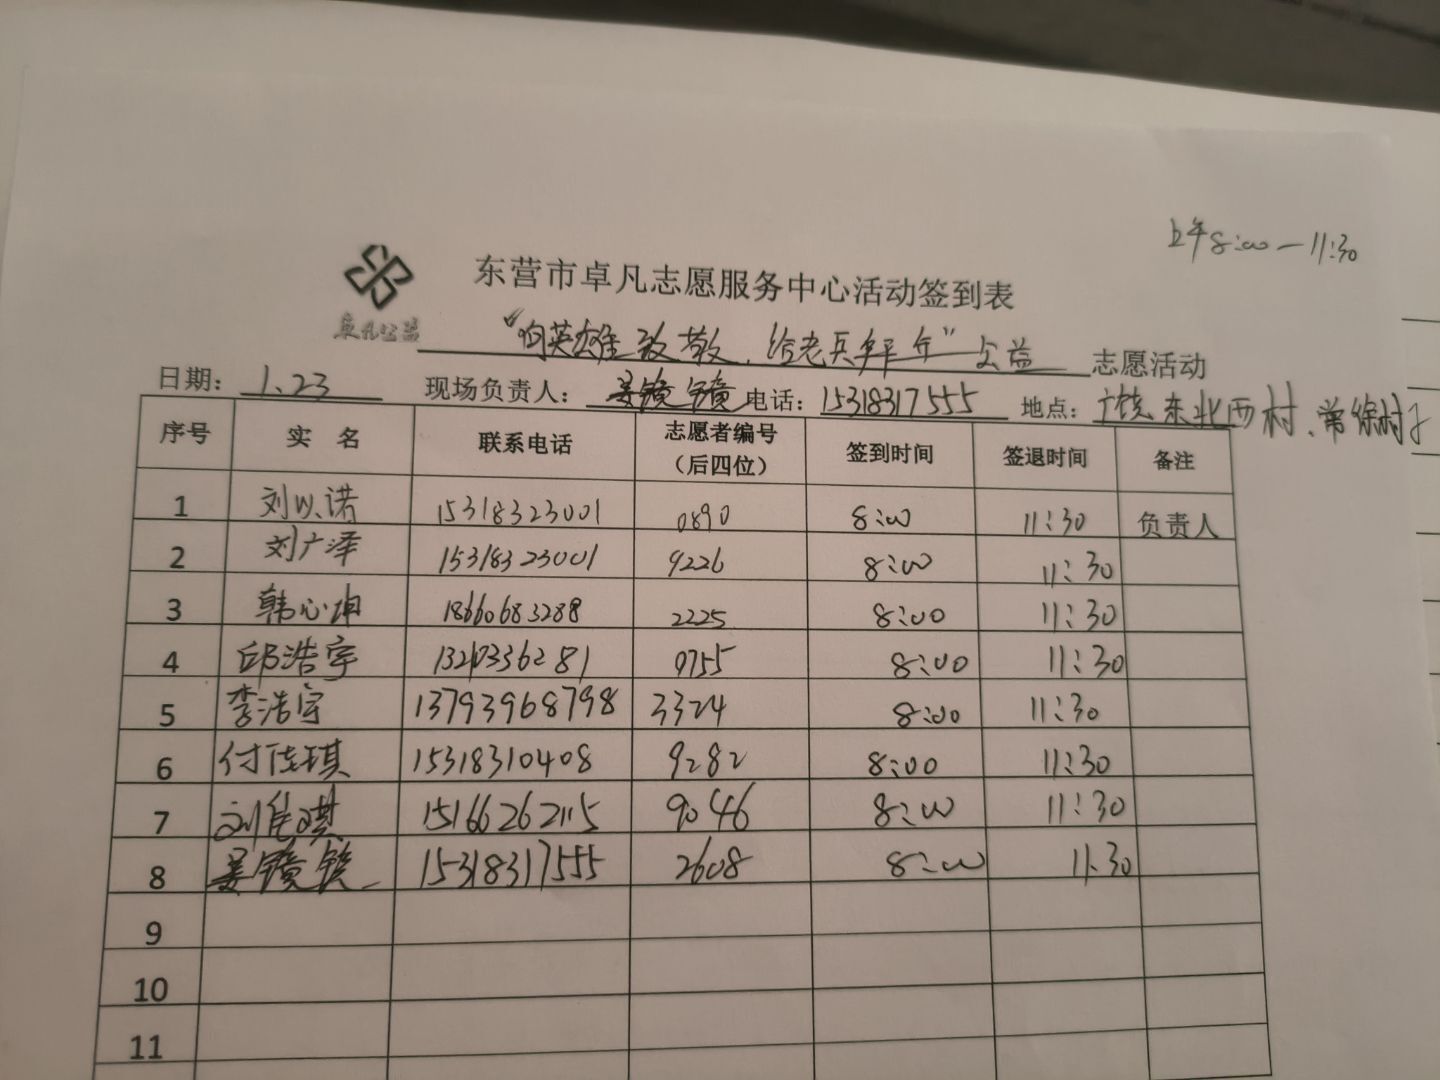 上午8:00—11:30
东营市卓凡志愿服务中心活动签到表
卓凡公益
“向英雄致敬、给老兵拜年”公益 志愿活动
日期: 1.23 现场负责人: 姜镜镜 电话: 15318317555 地点: 广饶东北西村、常徐村
序号 实 名 联系电话 志愿者编号（后四位） 签到时间 签退时间 备注
1 刘以诺 15318323001 0890 8:00 11:30 负责人
2 刘广泽 15318323001 9226 8:00 11:30
3 韩心坤 18660683288 2225 8:00 11:30
4 邱浩宇 1320336281 0755 8:00 11:30
5 李浩宇 13793968798 3324 8:00 11:30
6 付佳琪 15318310408 9282 8:00 11:30
7 刘 琪 15166262115 9046 8:00 11:30
8 姜镜镜 15318317555 2608 8:00 11:30
9
10
11